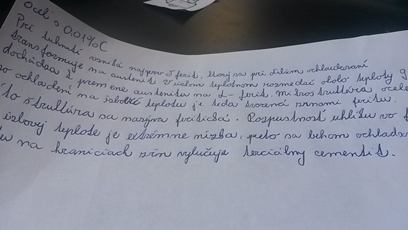 Oceľ s 0.01% C
Pri tuhnutí vzniká najprv δ ferit, ktorý sa pri ďalšom ochladzovaní
transformuje na austenit. V úzkom teplotnom rozmedzí okolo teploty 9
dochádza k premene austenitu na α - ferit. Mikroštruktúra ocele
po ochladení na izbovú teplotu je teda tvorená zrnami feritu.
to štruktúra sa nazýva feritická. Rozpustnosť uhlíku vo
izbovej teplote je extrémne nízka, preto sa behom ochladz
na hraniciach zŕn vylučuje terciálny cementit.